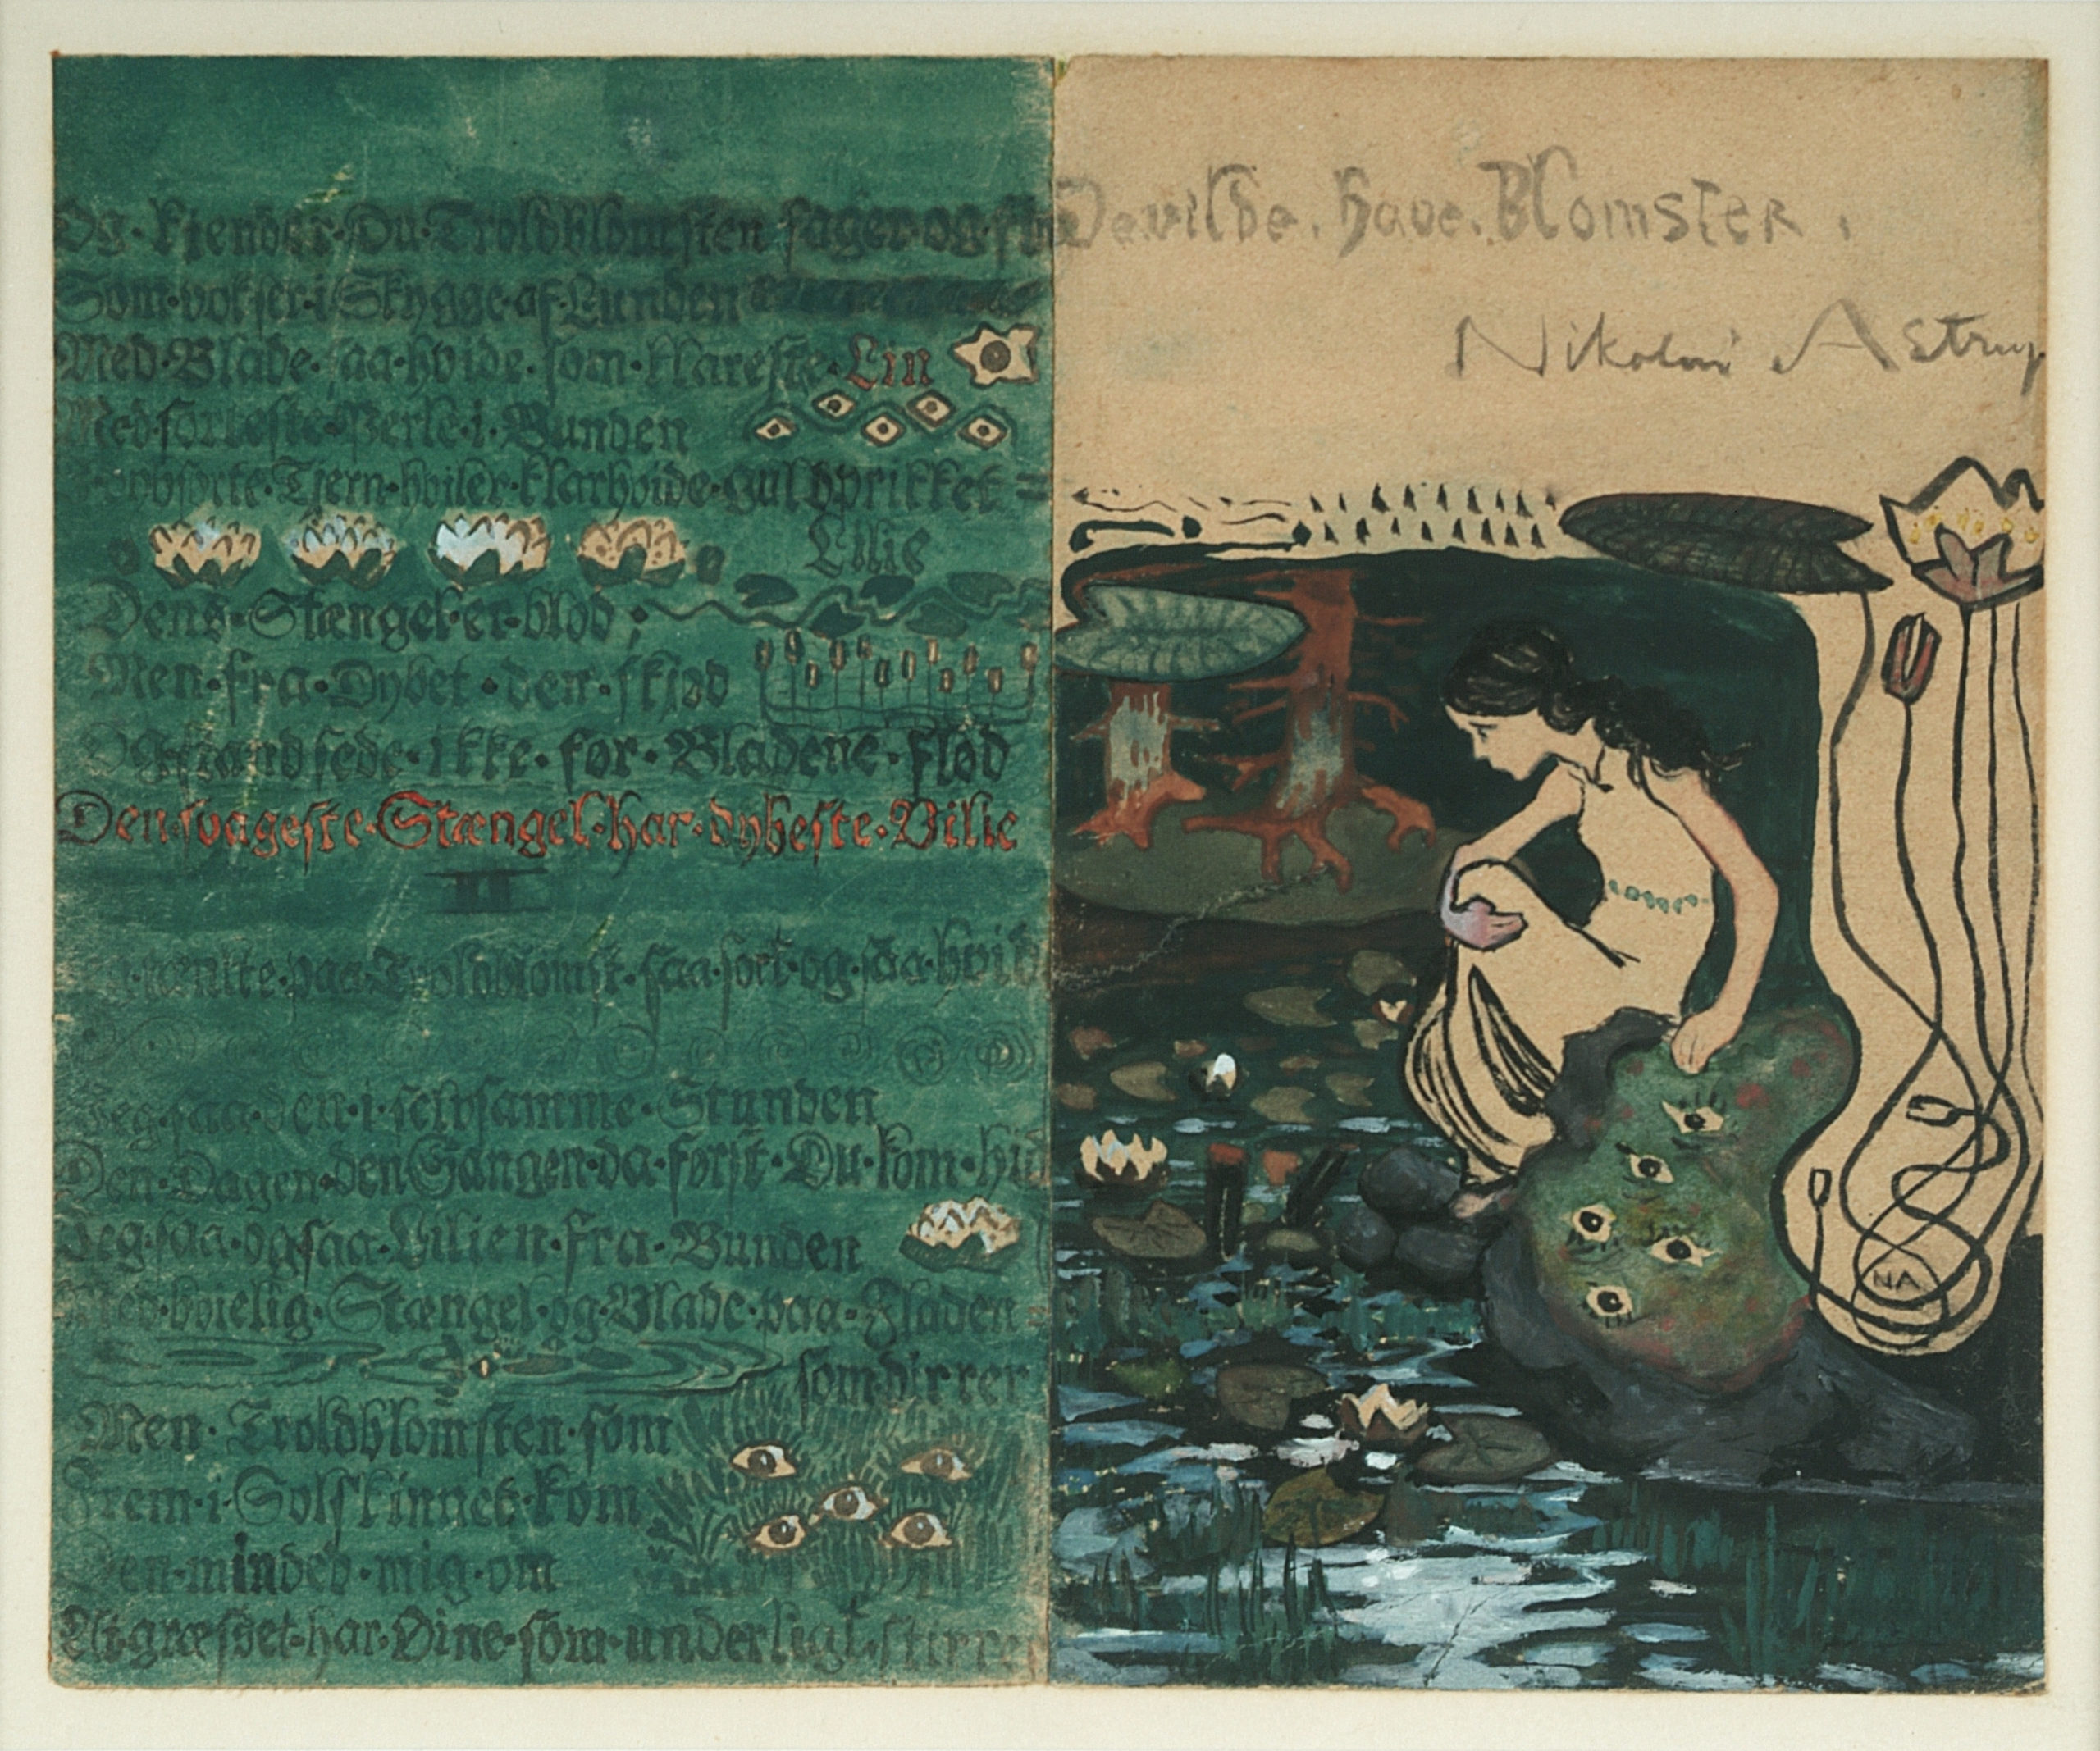 Og · kjender · Du · Troldblomsten · fager og
Som · vokser · i · Skygge · af · Lunden
Med · Blade · saa · hvide · som · klareste · Lin
Med · sorteste · Perle · i · Bunden
Tjern · hviler · klarhvide · gulhprikket =
Lilie
Dens · Stængel · er · blød ;
Men · fra · Dybet · den · skjød
ikke · før · Bladene · flød
Den · svageste · Stængel · har · dybeste · Vilie
II
paa · Troldblomst · saa · sort · og · saa · hvid
Jeg · saa · den · i · selvsamme · Stunden
Den · Dagen · den Gangen · da · først · Du · kom · hid
Jeg · saa · ogsaa · Lilien · fra · Bunden
Med · Stængel · og · Blade · paa · Fladen =
som dirrer
Men · Troldblomsten · som
Frem · i · Solskinnet · kom
Den · minded · mig · om
At græsset · har · Øine · som · underligt · stirrer
De vilde . have . Blomster .
Nikolai Astrup
NA